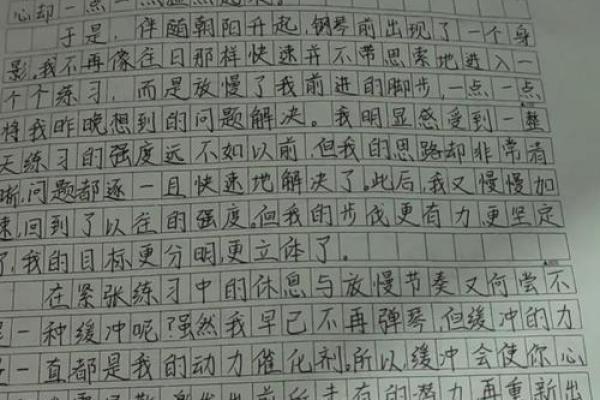 心却一点一点
于是，伴随朝阳升起，钢琴前出现了一个身
影。我不再像往日那样快速并不带思索地进入一
个个练习，而是放慢了我前进的脚步，一点一点
将我昨晚想到的问题解决。我明显感受到一整
天练习的强度远不如以前，但我的思路却非常清
晰，问题都逐一且快速地解决了。此后，我又慢慢加
速，回到了以往的强度。但我的步伐更有力，更坚定
了，我的目标更分明，更立体了。
在紧张练习中的休息与放慢节奏又何尝不
是一种缓冲呢？虽然我早已不再弹琴，但缓冲的力
一直都是我的动力催化剂。所以，缓冲会使你心
激发出前所未有的潜力，再重新出